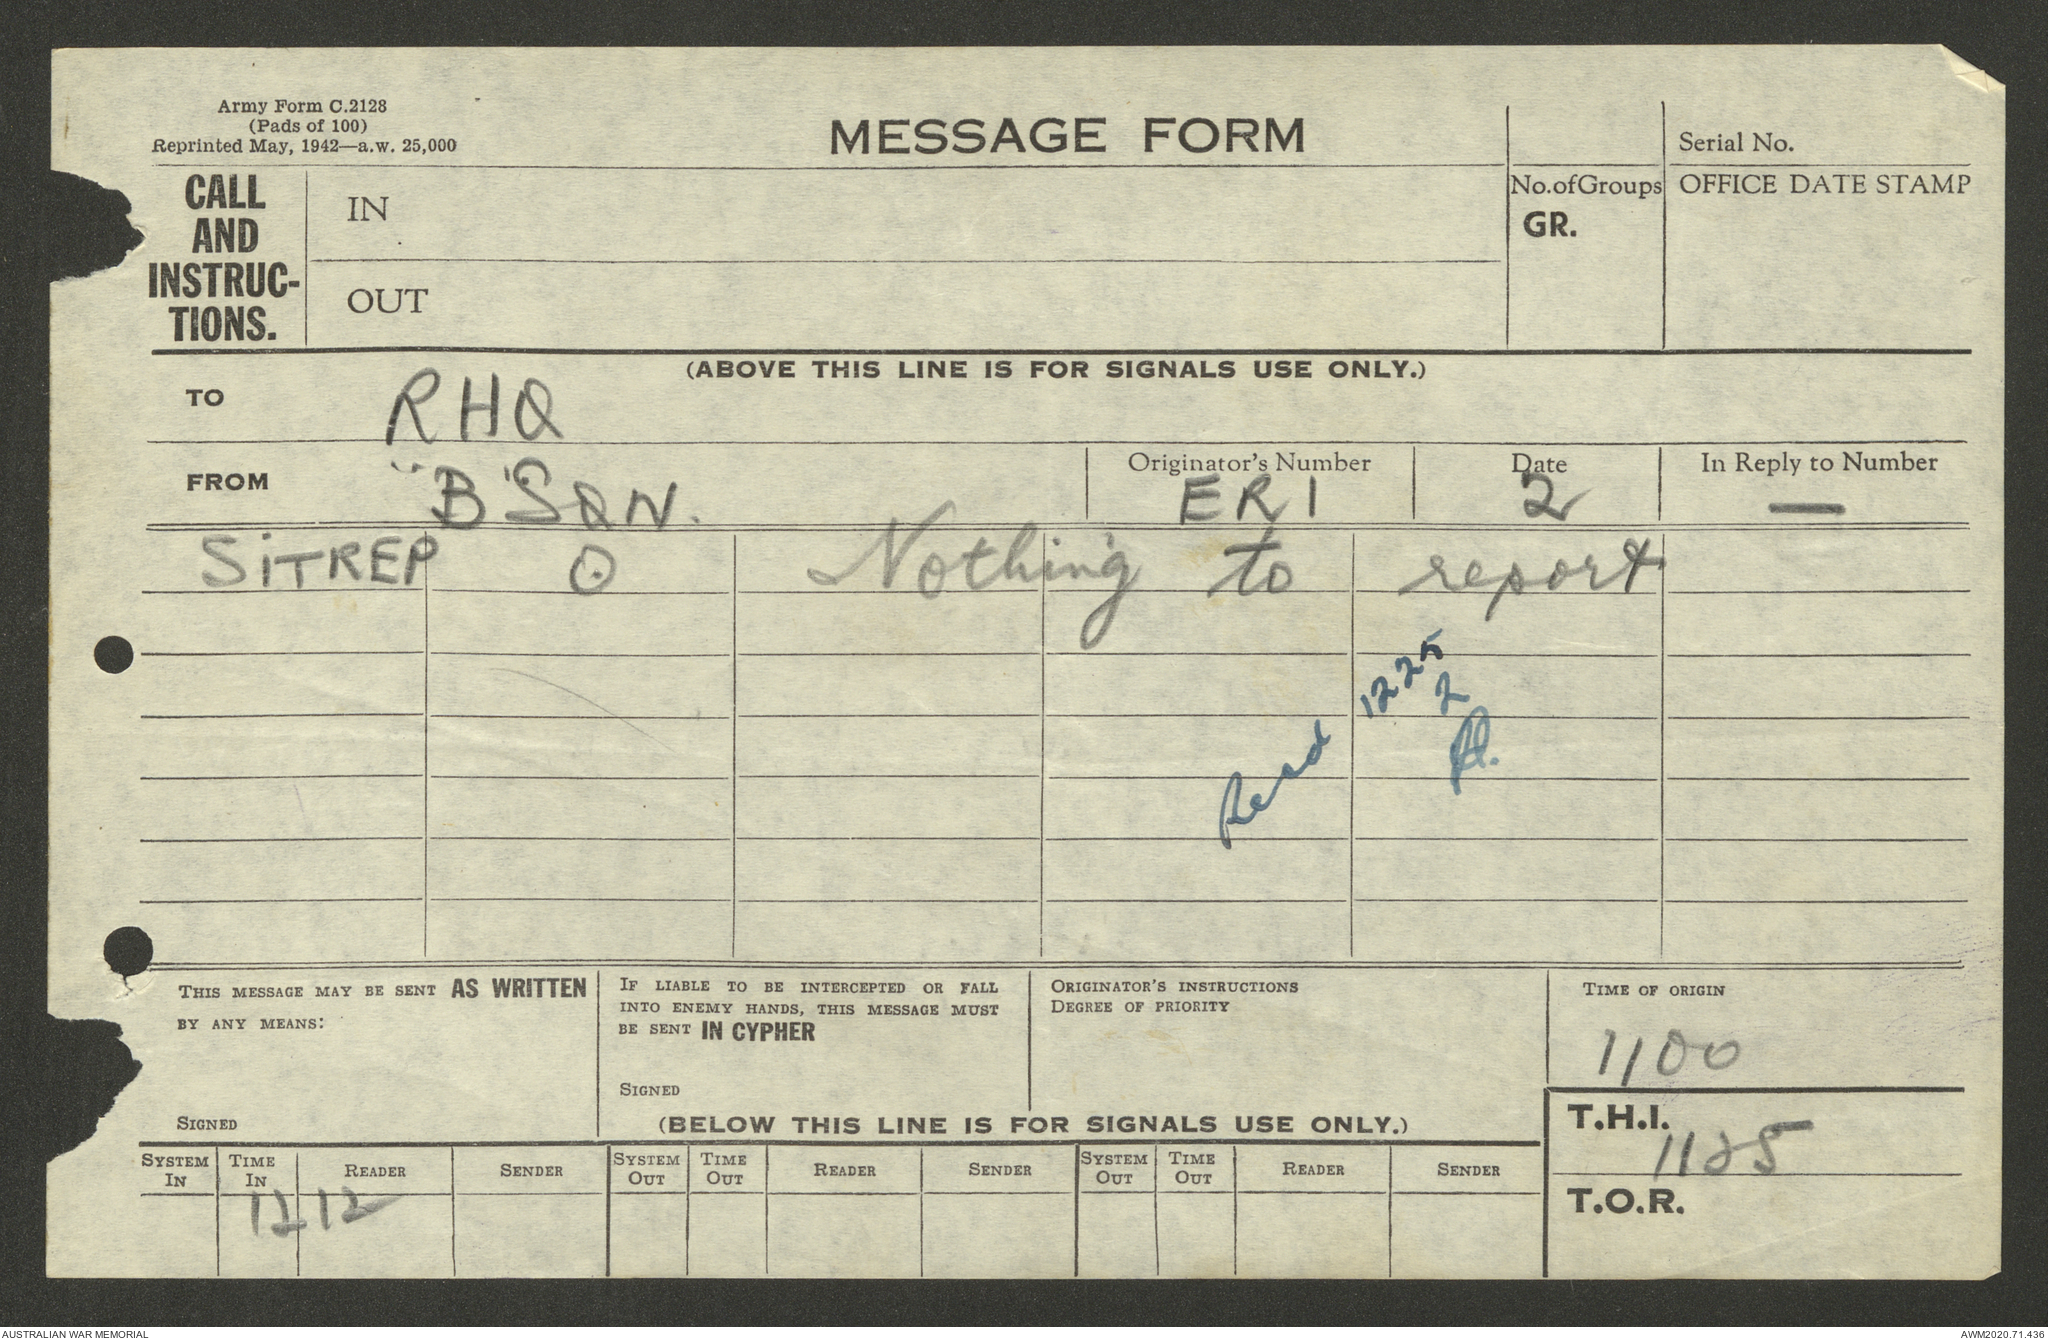 Army Form C.2128
(Pads of 100)
Reprinted May, 1942—a.w. 25,000
MESSAGE FORM
Serial No.
CALL
AND
INSTRUC-
TIONS.
IN
OUT
No. of Groups
GR.
OFFICE DATE STAMP
(ABOVE THIS LINE IS FOR SIGNALS USE ONLY.)
TO RHQ
FROM "B" SQN.
Originator's Number
ER1
Date
2
In Reply to Number
—
SITREP O Nothing to report
1225
2
THIS MESSAGE MAY BE SENT AS WRITTEN
BY ANY MEANS:
SIGNED
IF LIABLE TO BE INTERCEPTED OR FALL
INTO ENEMY HANDS, THIS MESSAGE MUST
BE SENT IN CYPHER
SIGNED
ORIGINATOR'S INSTRUCTIONS
DEGREE OF PRIORITY
TIME OF ORIGIN
1100
(BELOW THIS LINE IS FOR SIGNALS USE ONLY.)
T.H.I.
1125
T.O.R.
SYSTEM IN
TIME IN
READER
SENDER
SYSTEM OUT
TIME OUT
READER
SENDER
SYSTEM OUT
TIME OUT
READER
SENDER
1212
AUSTRALIAN WAR MEMORIAL
AWM2020.71.436